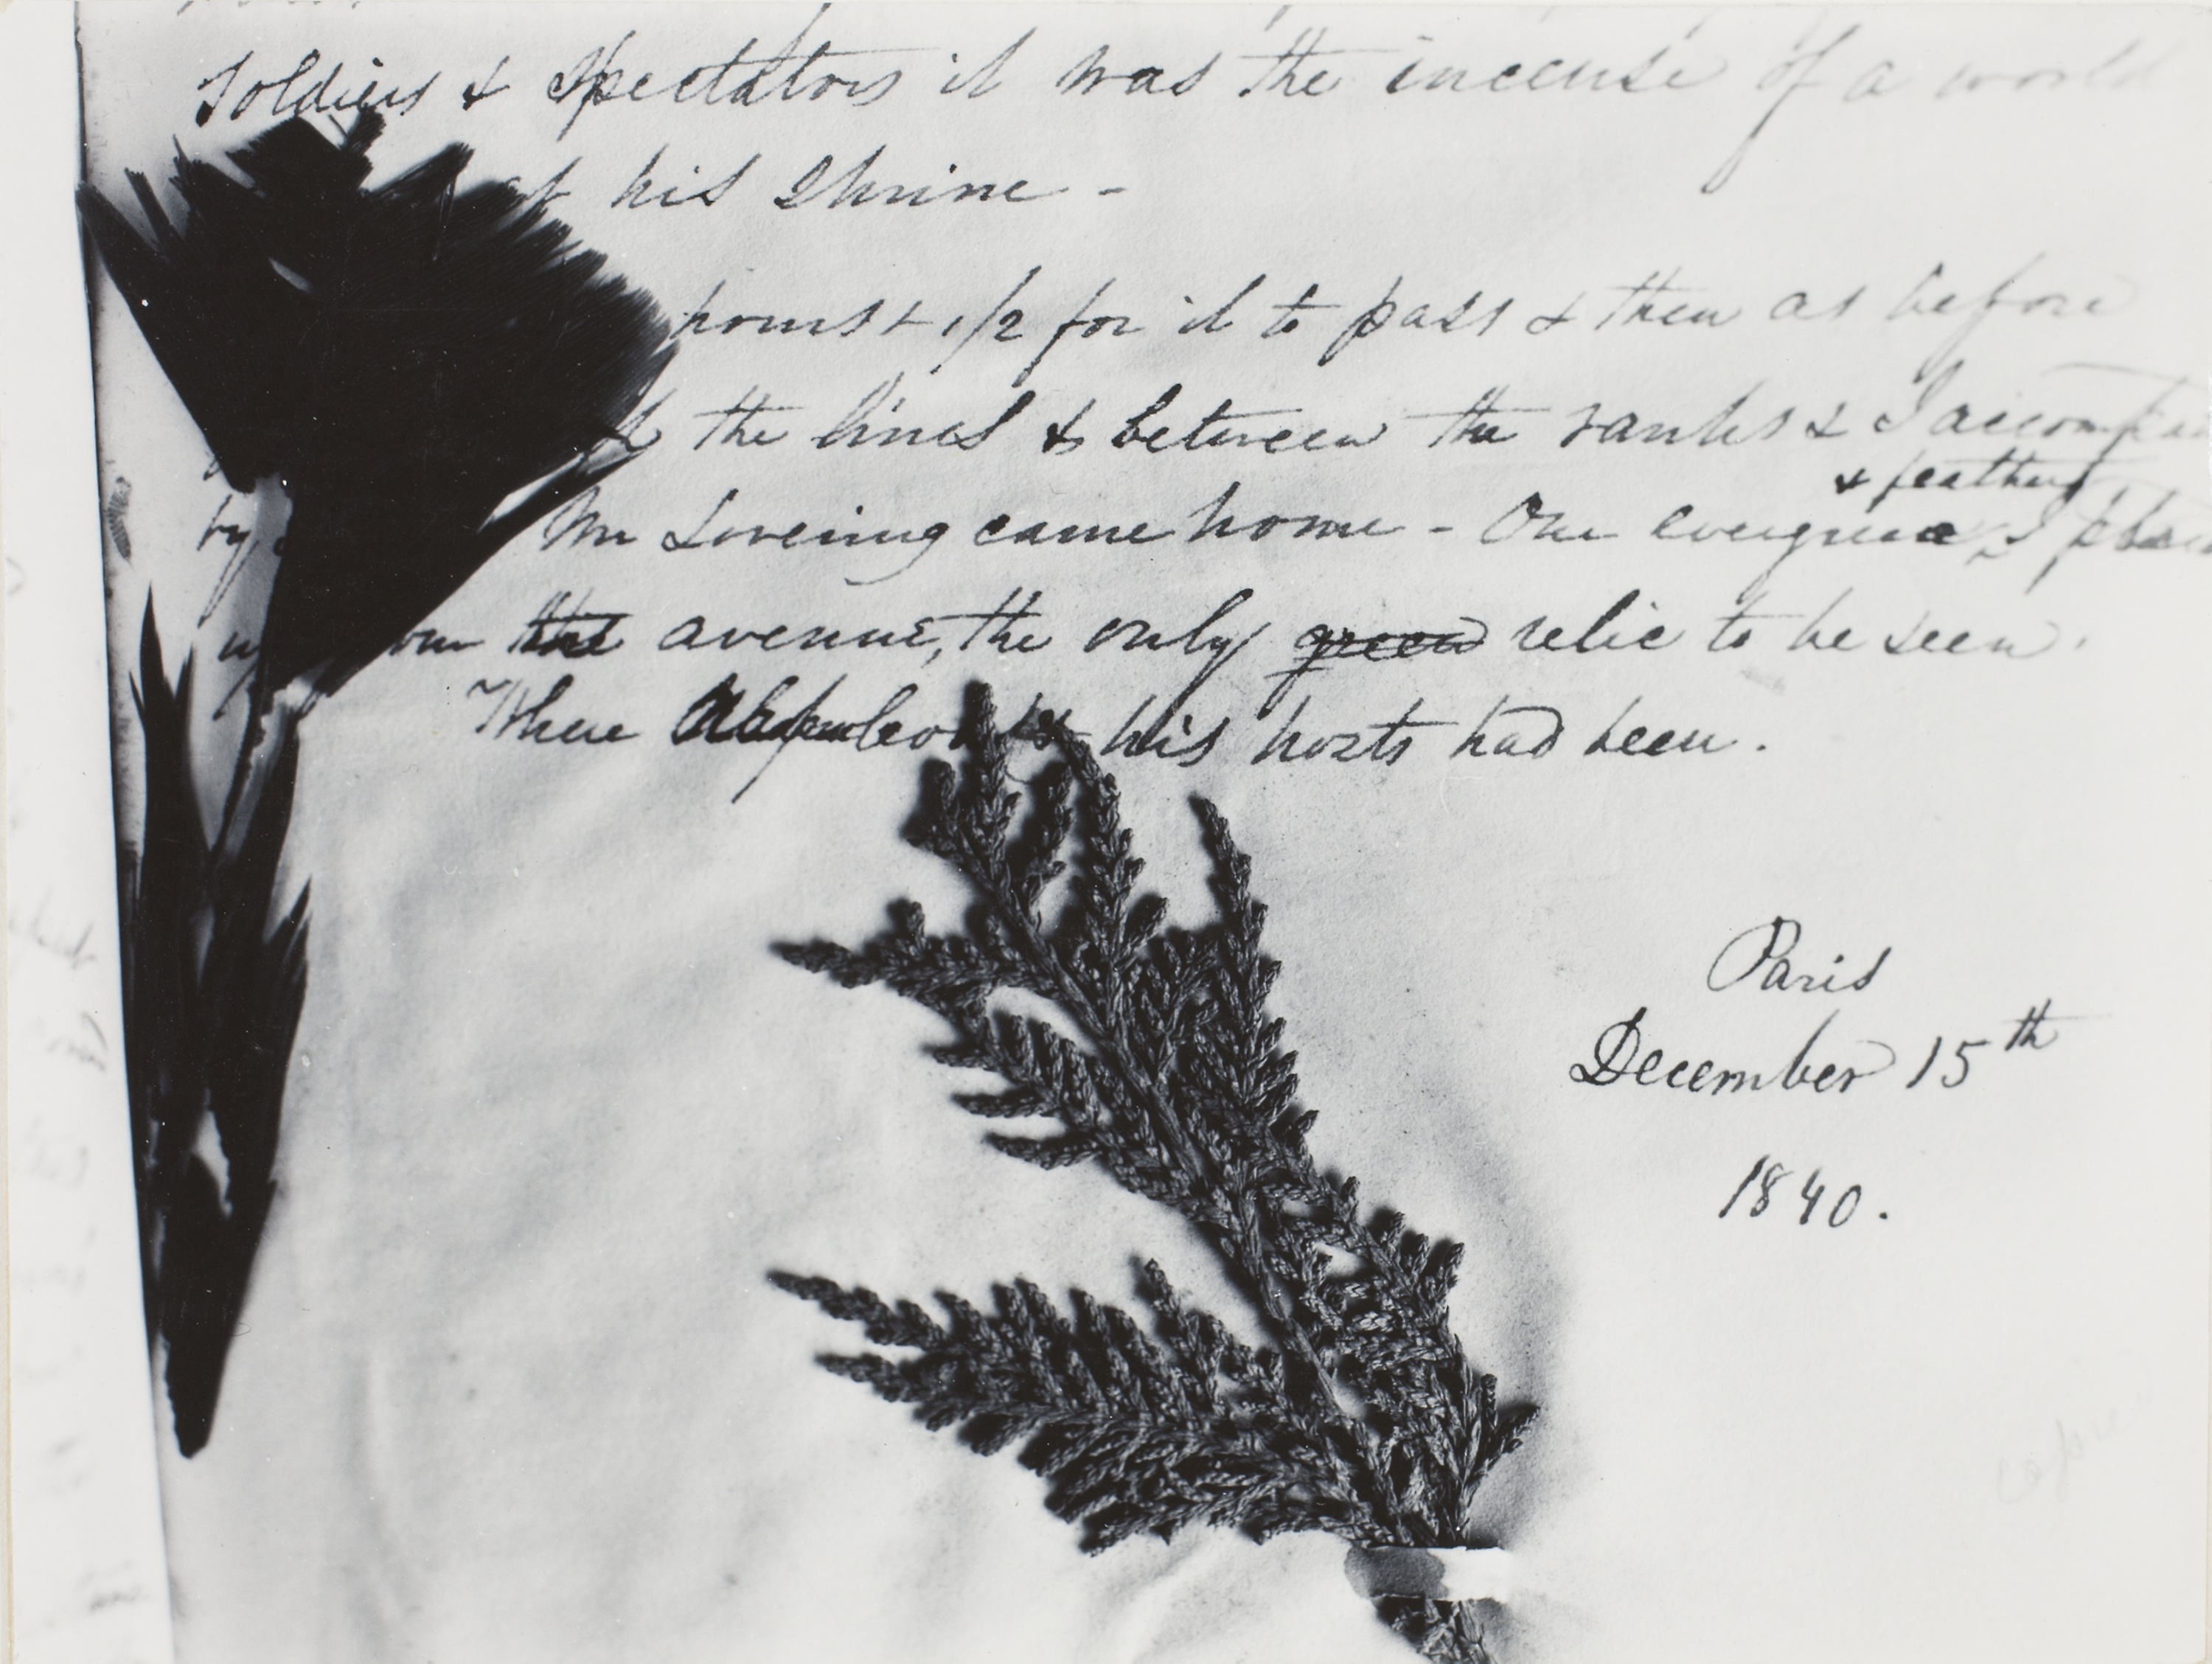 Soldiers & Spectators it was the incense of a world
at his Shrine -
hours & 1/2 for it to pass & then as before
the lines & between the ranks & I accompan
by Mr Lovering came home - One evergreen
& feather
I
avenue, the only green relic to be seen.
Where Napoleon & his hosts had been.
Paris
December 15th
1840.